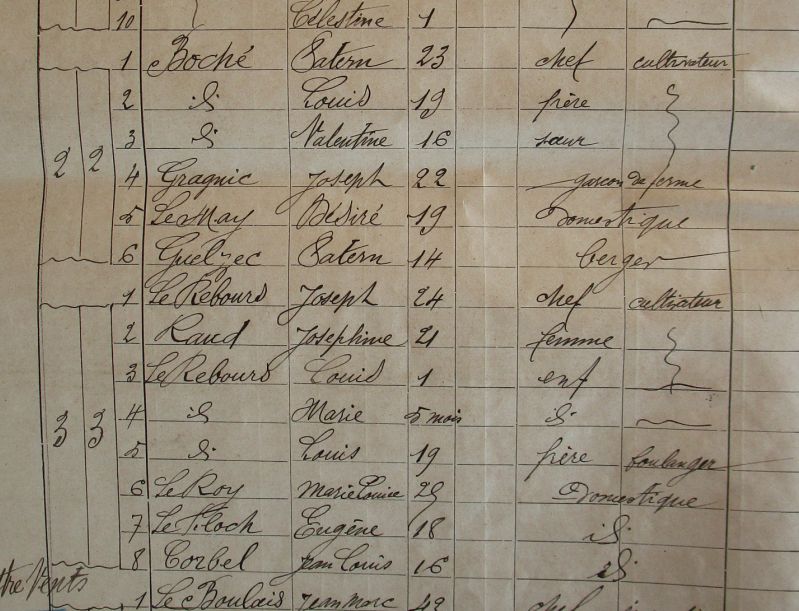 10 Célestine 1
1 Boché Patern 23 chef cultivateur
2 id Louis 19 frère
3 id Valentine 16 sœur
2 2
4 Gragnic Joseph 22 garcon de ferme
5 Le May Désiré 19 Domestique
6 Guélzec Patern 14 berger
1 Le Rebours Joseph 24 chef cultivateur
2 Raud Josephine 21 femme
3 Le Rebours Louis 1 enf
4 id Marie 5 mois id
3 3
5 id Louis 19 frère boulanger
6 Le Roy Marie Louise 29 Domestique
7 Le Floch Eugène 18 id
8 Corbel Jean Louis 16 id
Vents
1 Le Boulais Jean Marc 42 chef